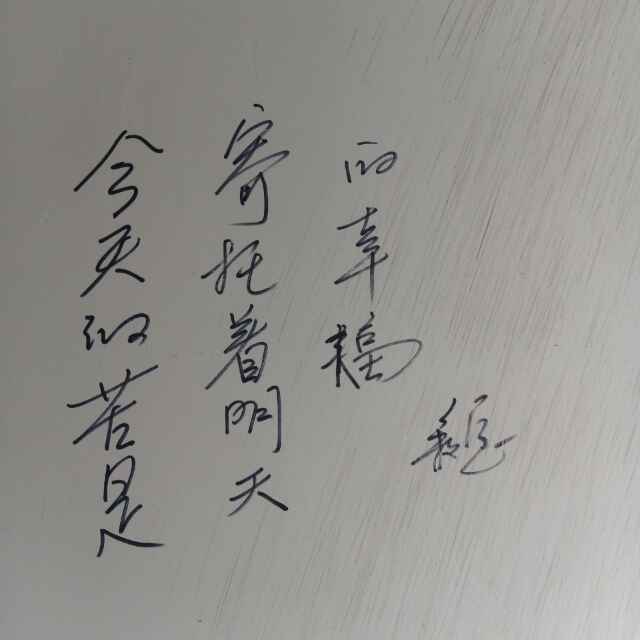 今天的苦是
寄托着明天
的幸福